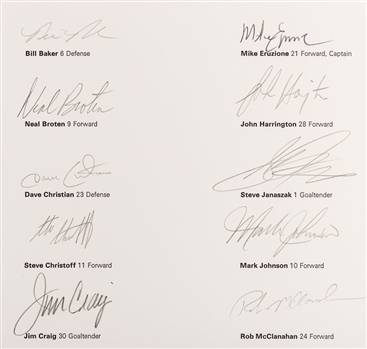 Bill Baker 6 Defense
Mike Eruzione
Mike Eruzione 21 Forward, Captain
Neal Broten
Neal Broten 9 Forward
John Harrington 28 Forward
Dave Christian 23 Defense
Steve Janaszak 1 Goaltender
Steve Christoff 11 Forward
Mark Johnson
Mark Johnson 10 Forward
Jim Craig
Jim Craig 30 Goaltender
Rob McClanahan
Rob McClanahan 24 Forward